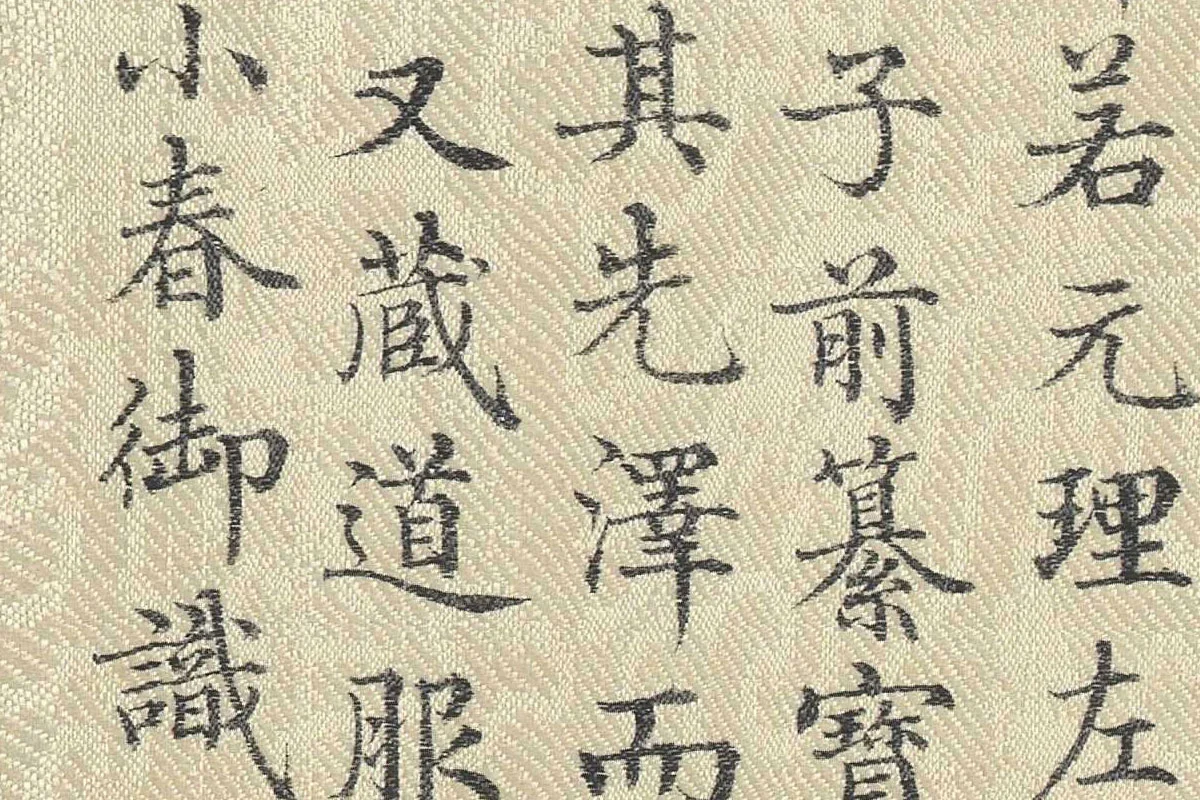 若元理左
子前纂寶
其先澤而
又蔵道服
小春御識